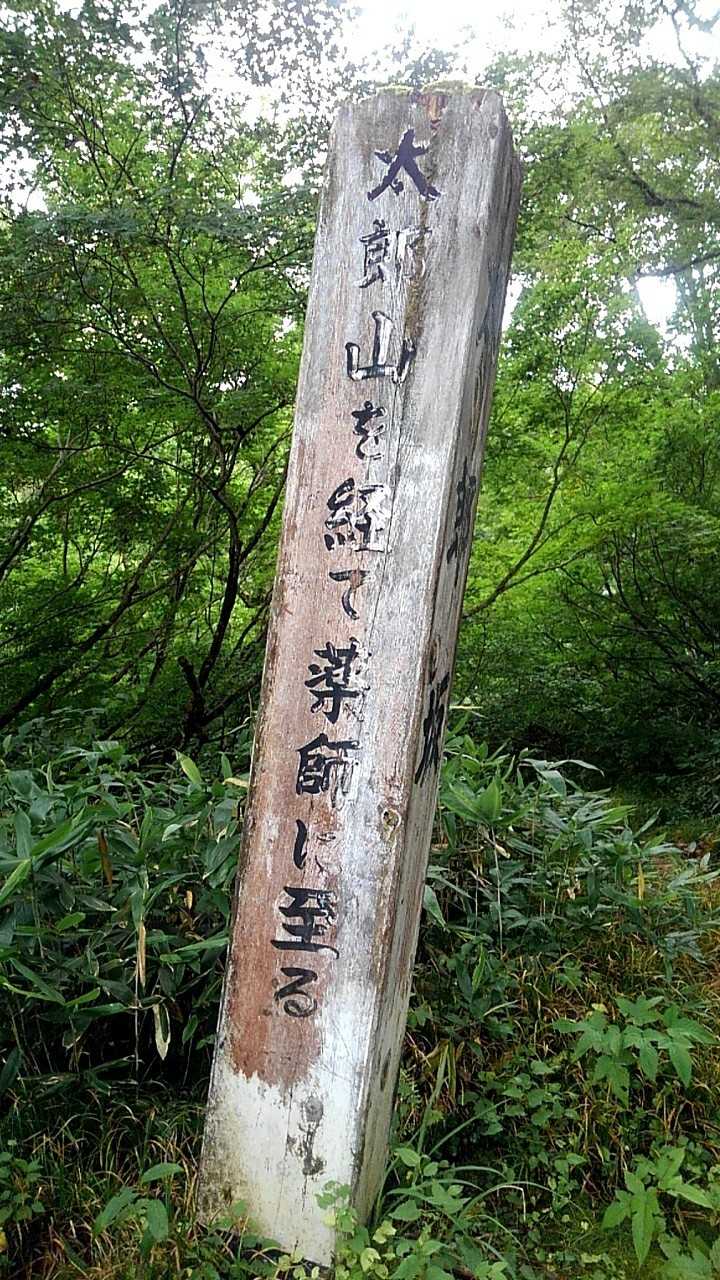 太郎山を経て薬師に至る
坂